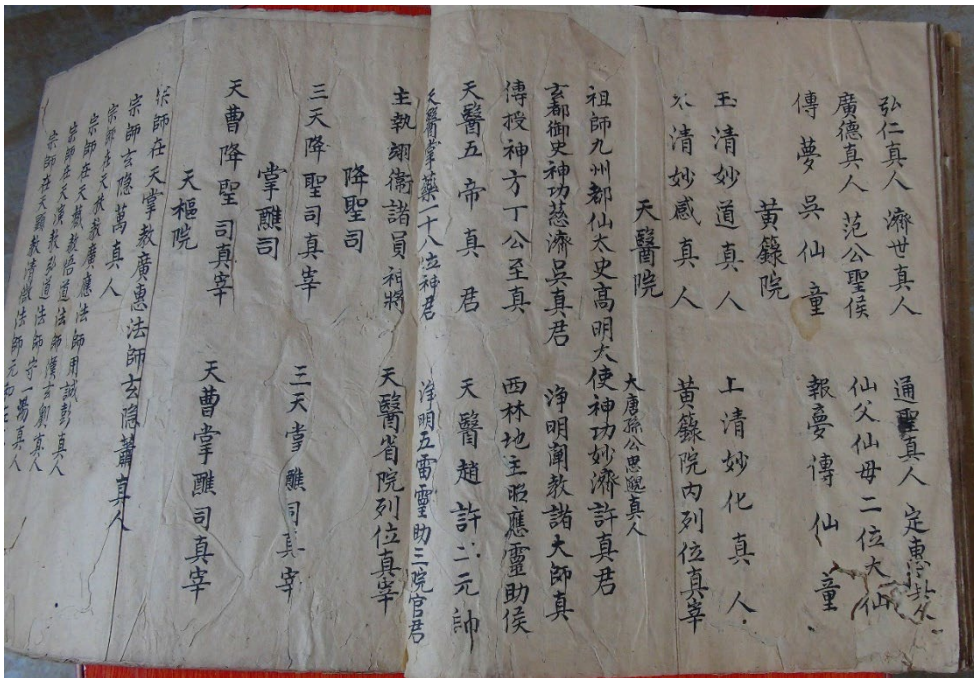 弘仁真人 濟世真人 通聖真人 定惠
廣德真人 范公聖侯 仙父仙母二位大仙
傳夢吳仙童 報夢傳仙童
黃籙院
玉清妙道真人 上清妙化真人
太清妙感真人 黃籙院內列位真宰
天醫院
大唐孫公思邈真人
祖師九州都仙太史高明大使神功妙濟許真君
玄都御史神功慈濟吳真君 淨明闡教諸大師真
傳授神方丁公至真 西林地主昭應靈助侯
天醫五帝真君 天醫趙許二元帥
天醫掌藥一十八位神君 淨明五雷靈助三院官君
主執翊衛諸員祀將 天醫省院列位真宰
降聖司
三天降聖司真宰 三天掌醮司真宰
掌醮司
天曹降聖司真宰 天曹掌醮司真宰
天樞院
宗師在天掌教廣惠法師玄隱蕭真人
宗師玄隱萬真人
宗師在天扶教廣應法師用誠彭真人
宗師在天機教悟道法師漢玄劉真人
宗師在天演教弘道法師守一馮真人
宗師在天顯教清微法師元